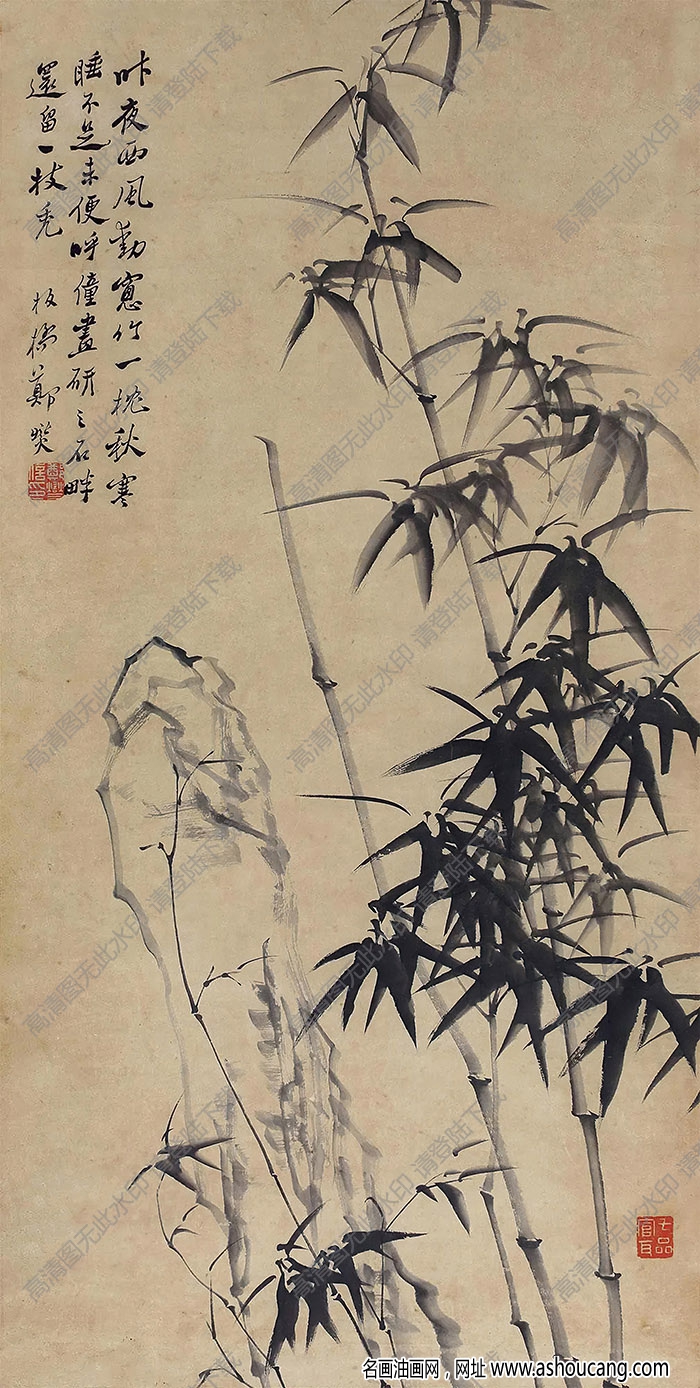 昨夜西風動窻竹一枕秋寒
睡不足未便呼僮盡斫之石畔
還留一枝禿
板橋鄭燮
七品官耳
高清图无此水印 请登陆下载
名画油画网，网址 www.ashoucang.com